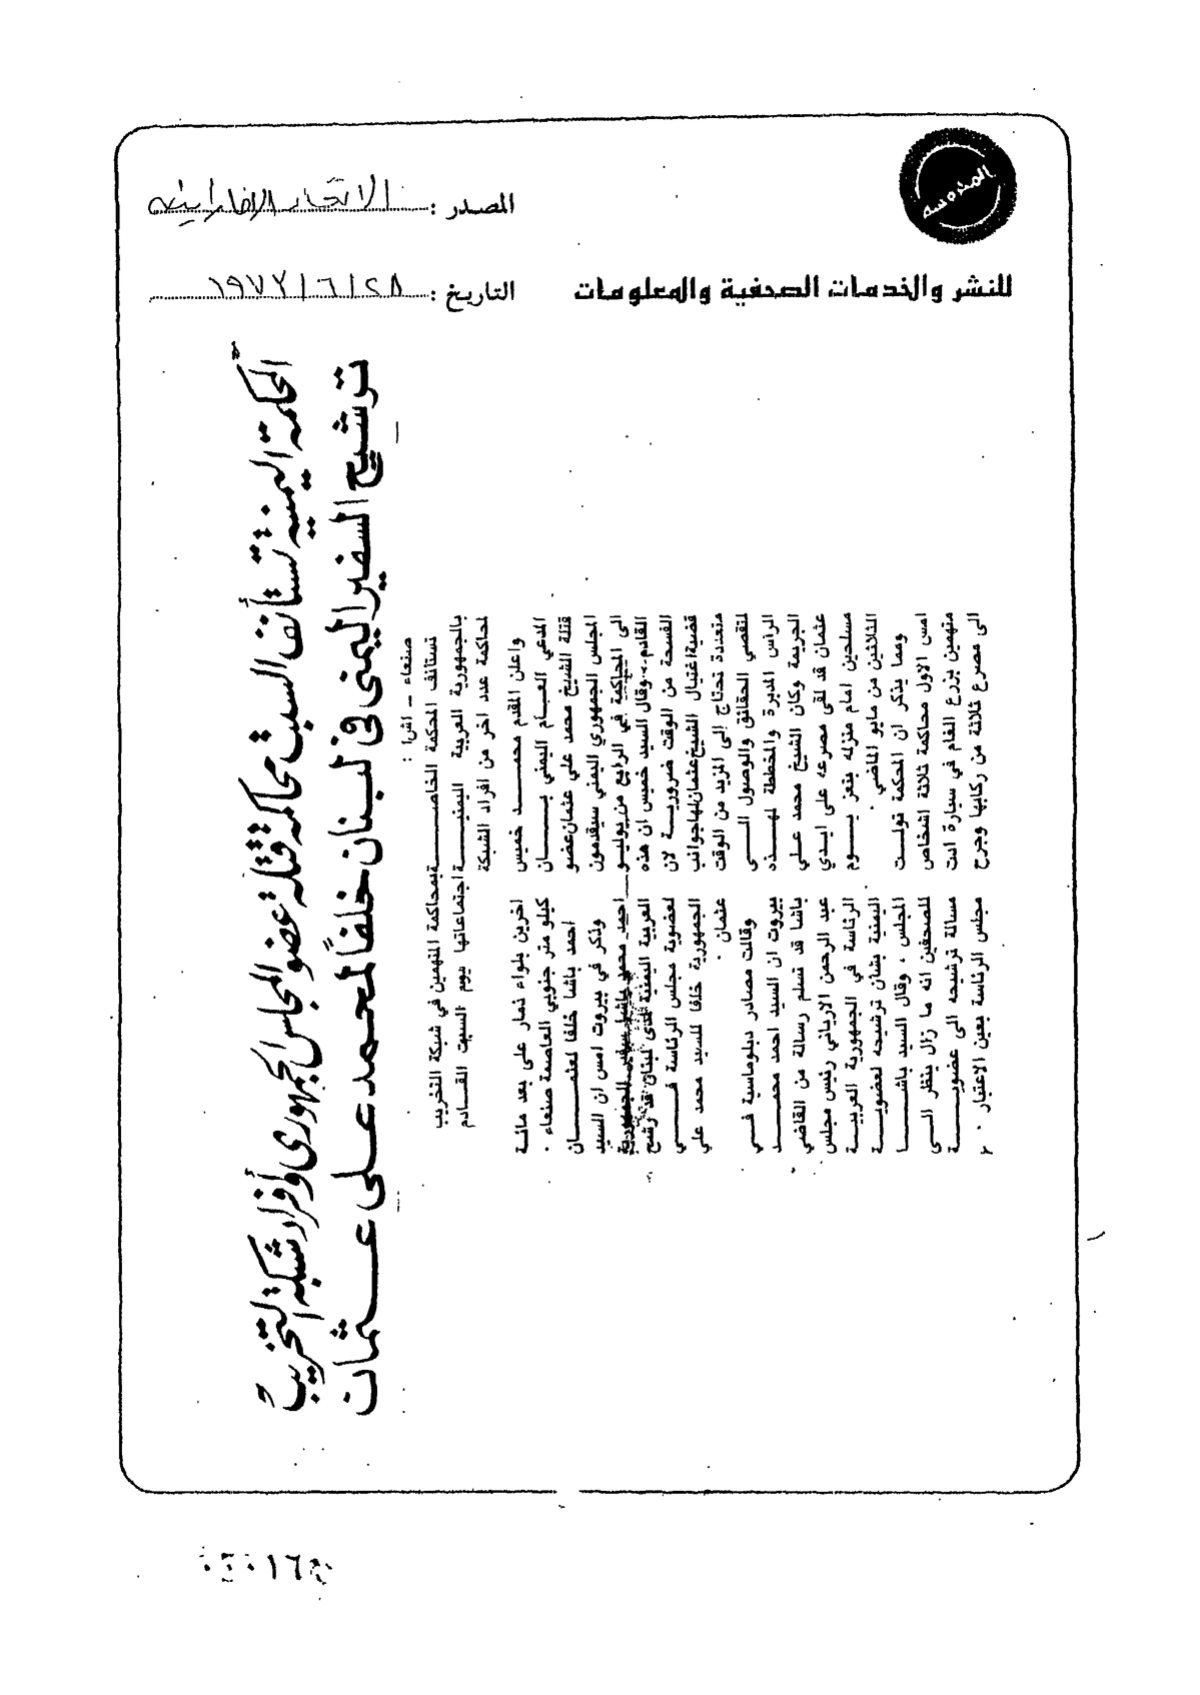 المحروسه
المصدر : الاتحاد الاماراتيه
للنشر والخدمات الصحفية والمعلومات
التاريخ : ٢٨ / ٦ / ١٩٧٣
المحكمة اليمنية تستأنف السبت محاكمة قتلة عضو المجلس الجمهورى وأفراد شبكة التخريب
ترشيح السفير اليمنى فى لبنان خلفاً لمحمد على عثمان
صنعاء - اش ا :
تستانف المحكمة الخاصة
بالجمهورية العربية اليمنية
لمحاكمة عدد اخر من افراد الشبكة
بمحاكمة المتهمين في شبكة التخريب
اجتماعاتها يوم السبت القادم
واعلن المقدم محمد خميس
المدعي العام اليمني بان
قتلة الشيخ محمد علي عثمان عضو
المجلس الجمهوري اليمني سيقدمون
الى المحاكمة في الرابع من يوليو
القادم .. وقال السيد خميس ان هذه
الفسحة من الوقت ضرورية لان
قضية اغتيال الشيخ عثمان لها جوانب
متعددة تحتاج إلى المزيد من الوقت
لتقصي الحقائق والوصول الى
الرأس المدبرة والمخططة لهذه
الجريمة وكان الشيخ محمد علي
عثمان قد لقى مصرعه على ايدي
مسلحين امام منزله بتعز يوم
الثلاثين من مايو الماضي .
ومما يذكر ان المحكمة تولت
امس الاول محاكمة ثلاثة اشخاص
متهمين بزرع الغام في سيارة ادت
الى مصرع ثلاثة من ركابها وجرح
اخرين بلواء ذمار على بعد مائة
كيلو متر جنوبي العاصمة صنعاء .
احمد باشا خلفا لعثمان
وذكر في بيروت امس ان السيد
احمد محمد باشا سفير الجمهورية
العربية اليمنية لدى لبنان قد رشح
لعضوية مجلس الرئاسة في
الجمهورية خلفا للسيد محمد علي
عثمان .
وقالت مصادر دبلوماسية في
بيروت ان السيد احمد محمد
باشا قد تسلم رسالة من القاضي
عبد الرحمن الارياني رئيس مجلس
الرئاسة في الجمهورية العربية
اليمنية بشان ترشيحه لعضوية
المجلس ، وقال السيد باشا
للصحفين انه ما زال ينظر الى
مسالة ترشيحه الى عضوية
مجلس الرئاسة بعين الاعتبار .